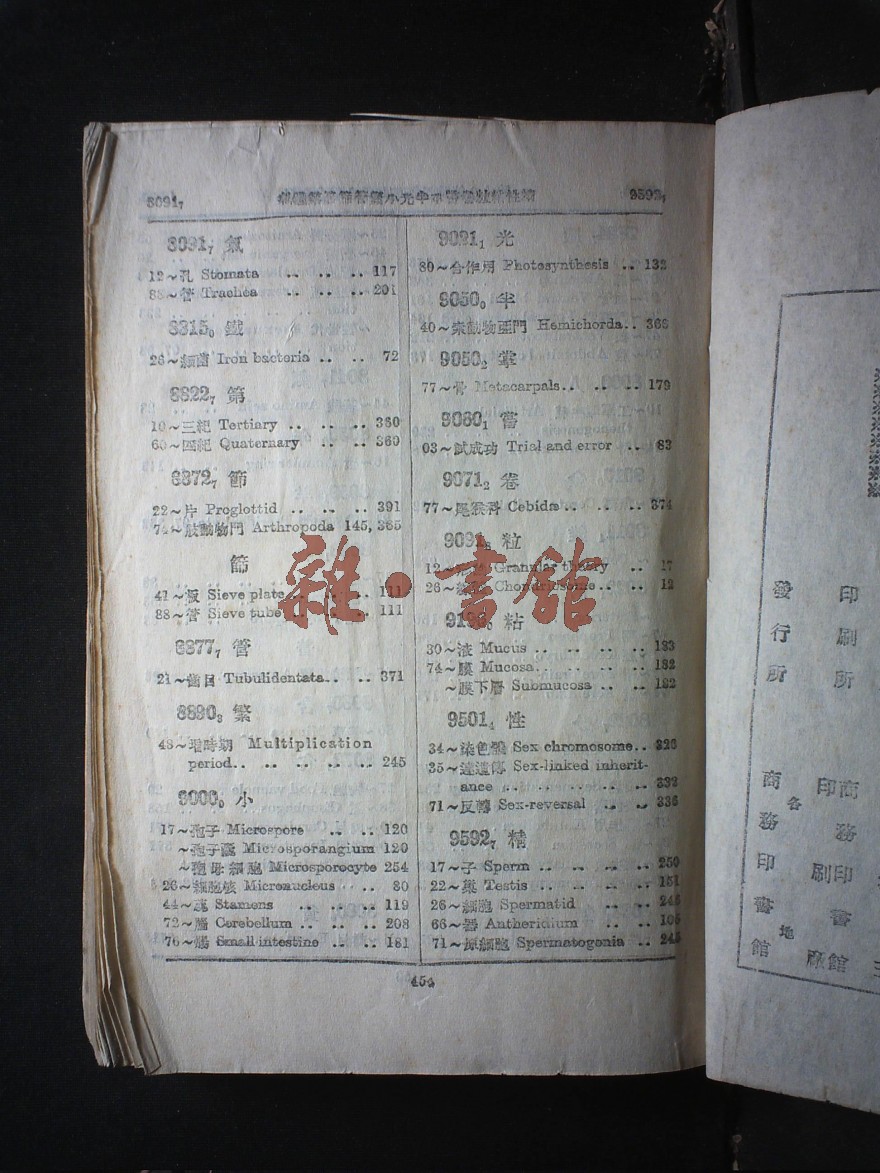 8091₇
9592₇
8091₇ 氣
12～孔 Stomata .. .. .. 117
88～管 Trachea .. .. .. 201
8315₀ 鐵
26～細菌 Iron bacteria .. .. 72
8822₇ 第
10～三紀 Tertiary .. .. .. 360
60～四紀 Quaternary .. .. 360
8872₇ 節
22～片 Proglottid .. .. .. 391
74～肢動物門 Arthropoda 145, 365
篩
41～板 Sieve plate .. .. .. 111
88～管 Sieve tube .. .. .. 111
8877₇ 管
21～齒目 Tubulidentata.. .. 371
8890₃ 繁
48～殖時期 Multiplication
period.. .. .. .. .. 245
9000₀ 小
17～孢子 Microspore .. .. 120
～孢子囊 Microsporangium 120
～孢母細胞 Microsporocyte 254
26～細胞核 Micronucleus .. 80
44～蕊 Stamens .. .. .. 119
72～腦 Cerebellum .. .. .. 208
76～腸 Small intestine .. .. 181
9021₁ 光
80～合作用 Photosynthesis .. 132
9050₀ 半
40～索動物亞門 Hemichorda.. 366
9050₂ 掌
77～骨 Metacarpals.. .. .. 179
9060₁ 嘗
03～試成功 Trial and error .. 83
9071₂ 卷
77～尾猴科 Cebidæ .. .. .. 374
9091₈ 粒
12～ Granular theory .. 17
26～ Chondriosome.. .. 12
粘
30～液 Mucus .. .. .. .. 183
74～膜 Mucosa.. .. .. .. 182
～膜下層 Submucosa .. .. 182
9501₄ 性
34～染色體 Sex chromosome.. 328
35～連遺傳 Sex-linked inherit-
ance .. .. .. .. .. 332
71～反轉 Sex-reversal .. .. 336
9592₇ 精
17～子 Sperm .. .. .. .. 250
22～巢 Testis .. .. .. .. 151
26～細胞 Spermatid .. .. 246
66～器 Antheridium .. .. 106
71～原細胞 Spermatogonia .. 245
454
雜·書館
印刷所
發行所
商務印書館
各地
印刷廠
商務印書館